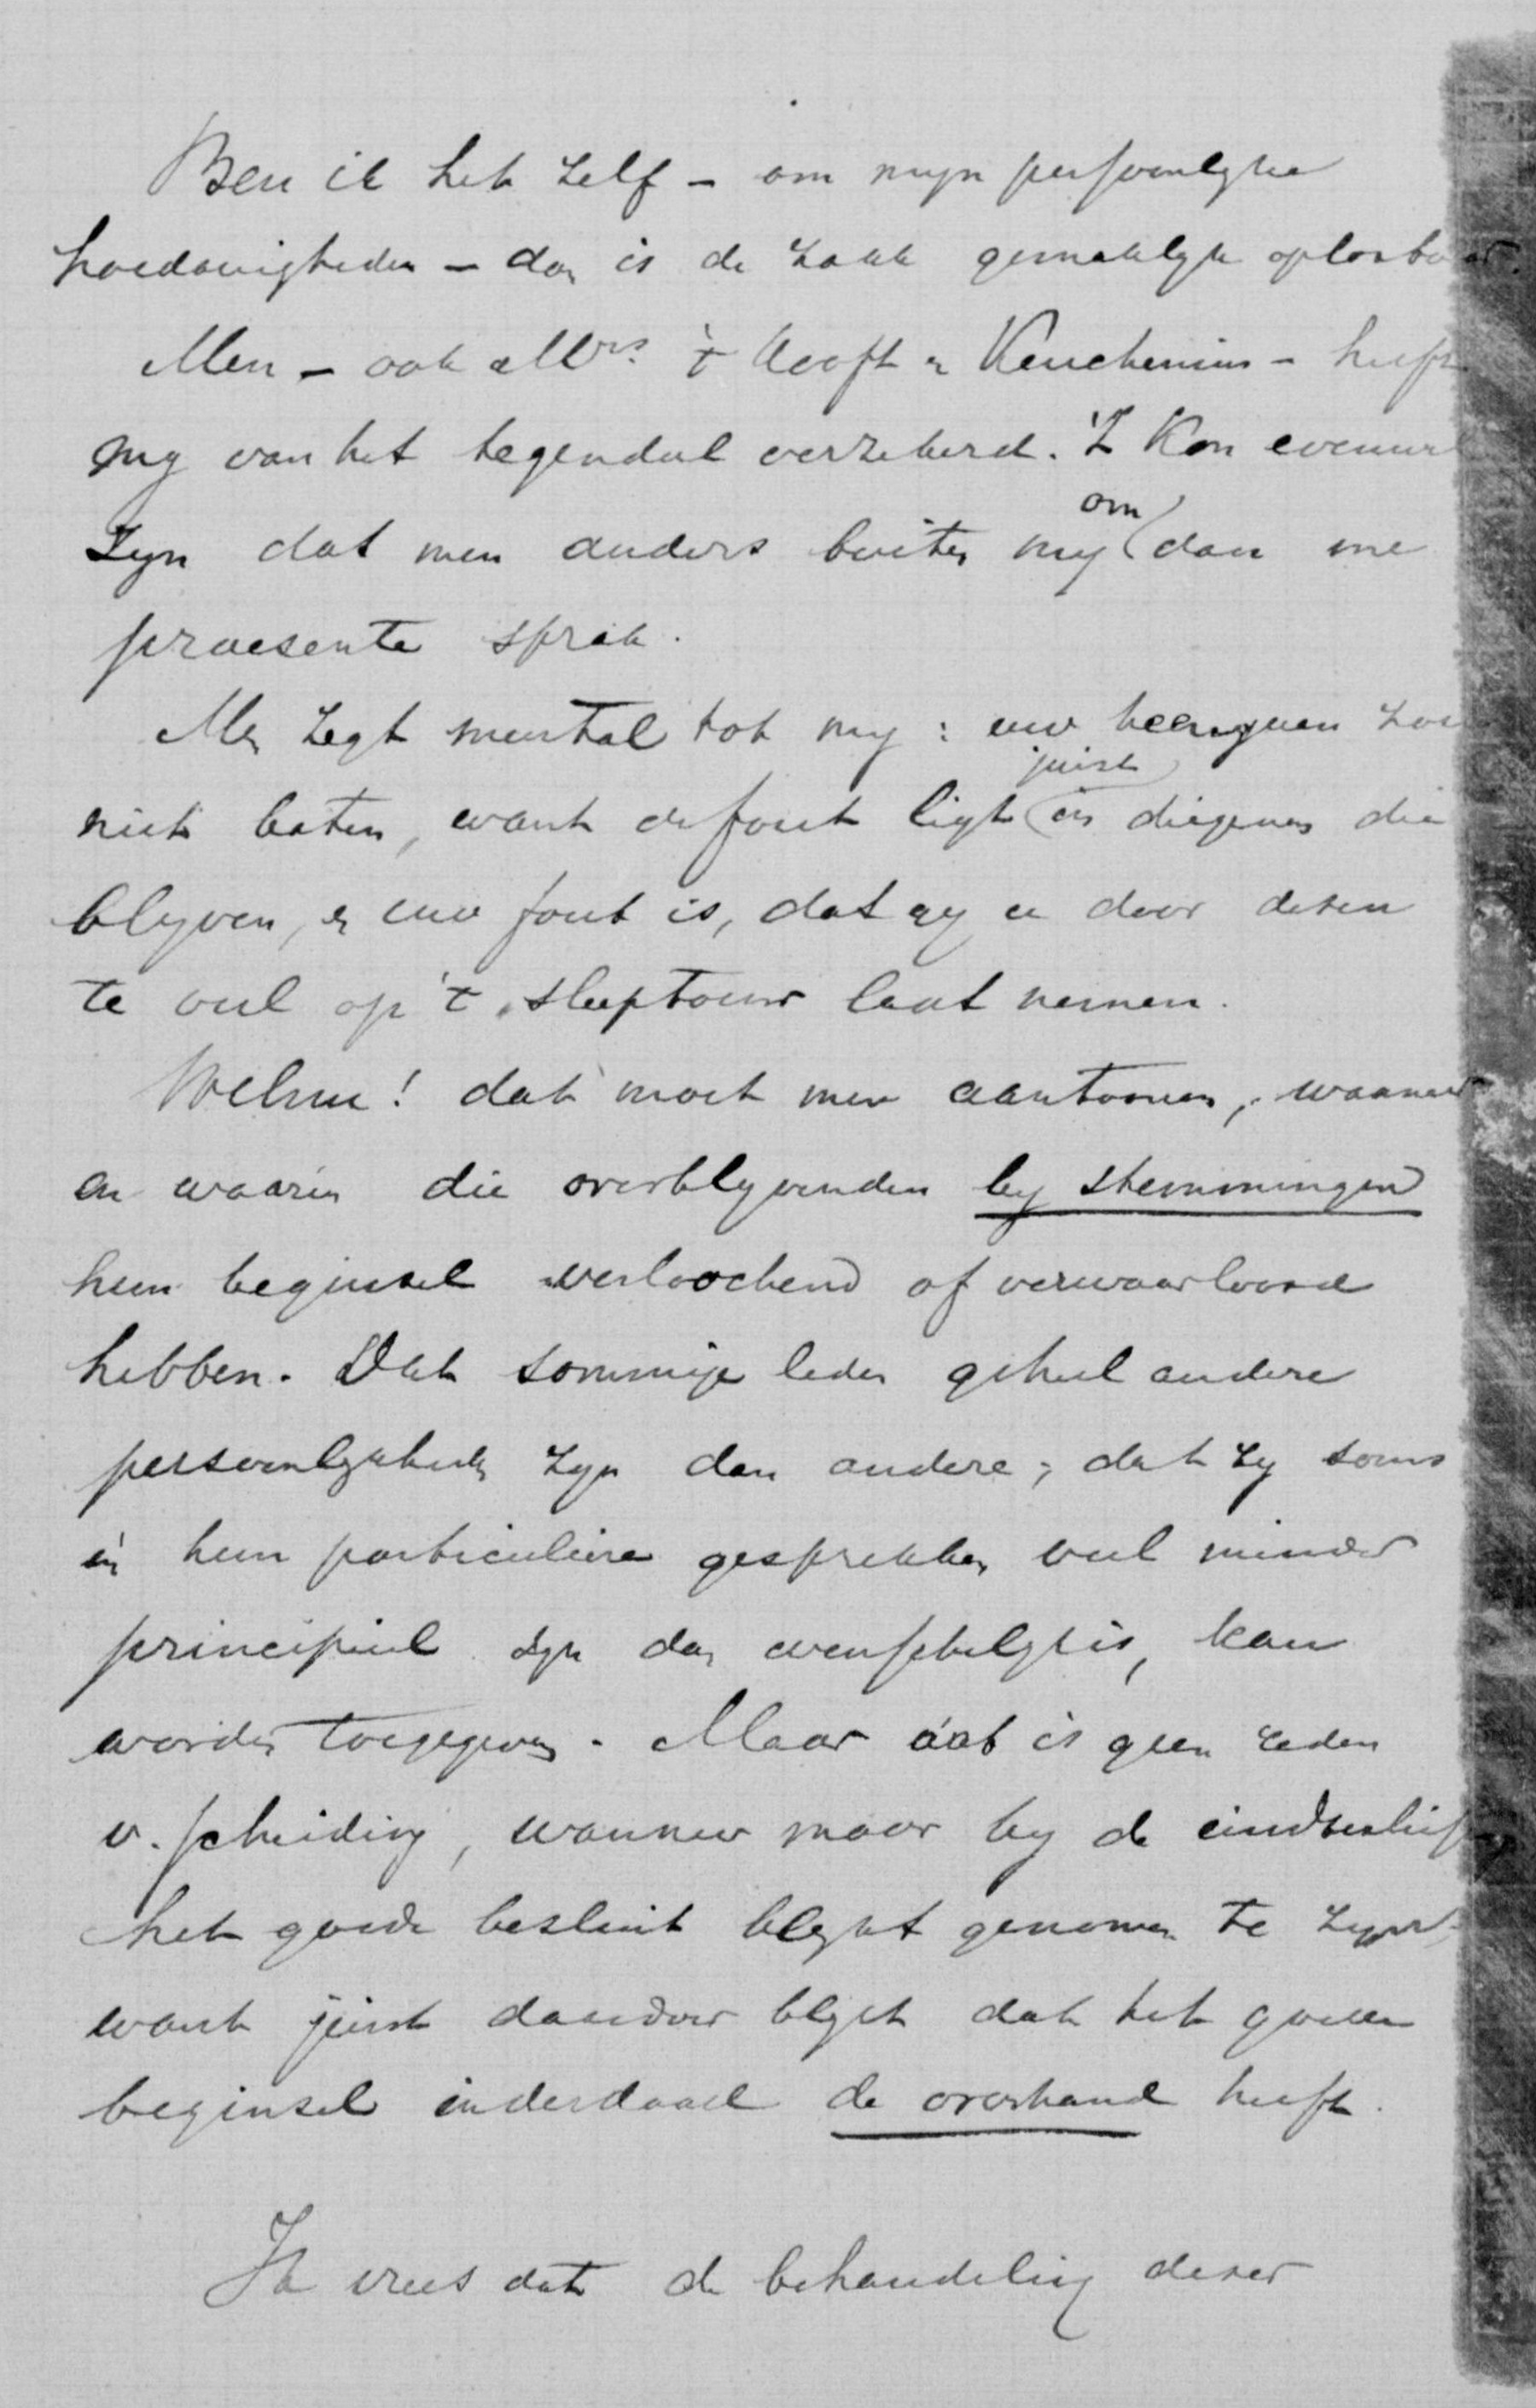 Ben ik het zelf – om mijn persoonlyke
hoedanigheden – dan is de zaak gemaklyk oplosbaar.
Men – ook Mrs. 't Hooft en Keuchenius – heeft
my van het tegendeel verzekerd. 't Kon evenwel
zyn dat men anders buiten my om dan me
praesente sprak.
Men zegt meestal tot my: uw heengaan zou
niet baten, want de fout ligt juist in diegenen die
blyven, en uw fout is, dat gy u door dezen
te veel op 't sleeptouw laat nemen.
Welnu! dat moet men aantoonen, waarneer
en waarin die overblyvenden by stemmingen
hun beginsel verloochend of verwaarloosd
hebben. Dat sommige leden geheel andere
persoonlykheden zyn dan andere; dat zy soms
in hun particuliere gesprekken veel minder
principieel zyn dan wenschelyk is, kan
worden toegegeven. Maar dat is geen reden
v. scheiding, wanneer maar by de eindbeslis
het goede besluit blykt genomen te zyn,
want juist daardoor blykt dat het goede
beginsel inderdaad de overhand heeft.
Ik vrees dat de behandeling dezer